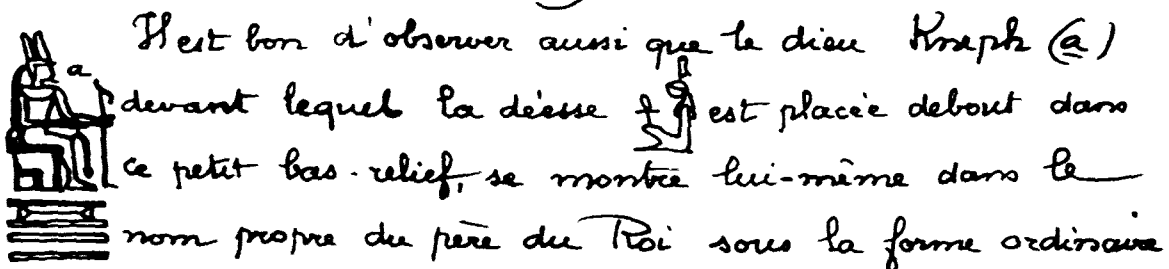 Il est bon d'observer aussi que le dieu Kneph (a)
a
devant lequel la déesse est placée debout dans
ce petit bas-relief, se montre lui-même dans le
nom propre du père du Roi sous la forme ordinaire